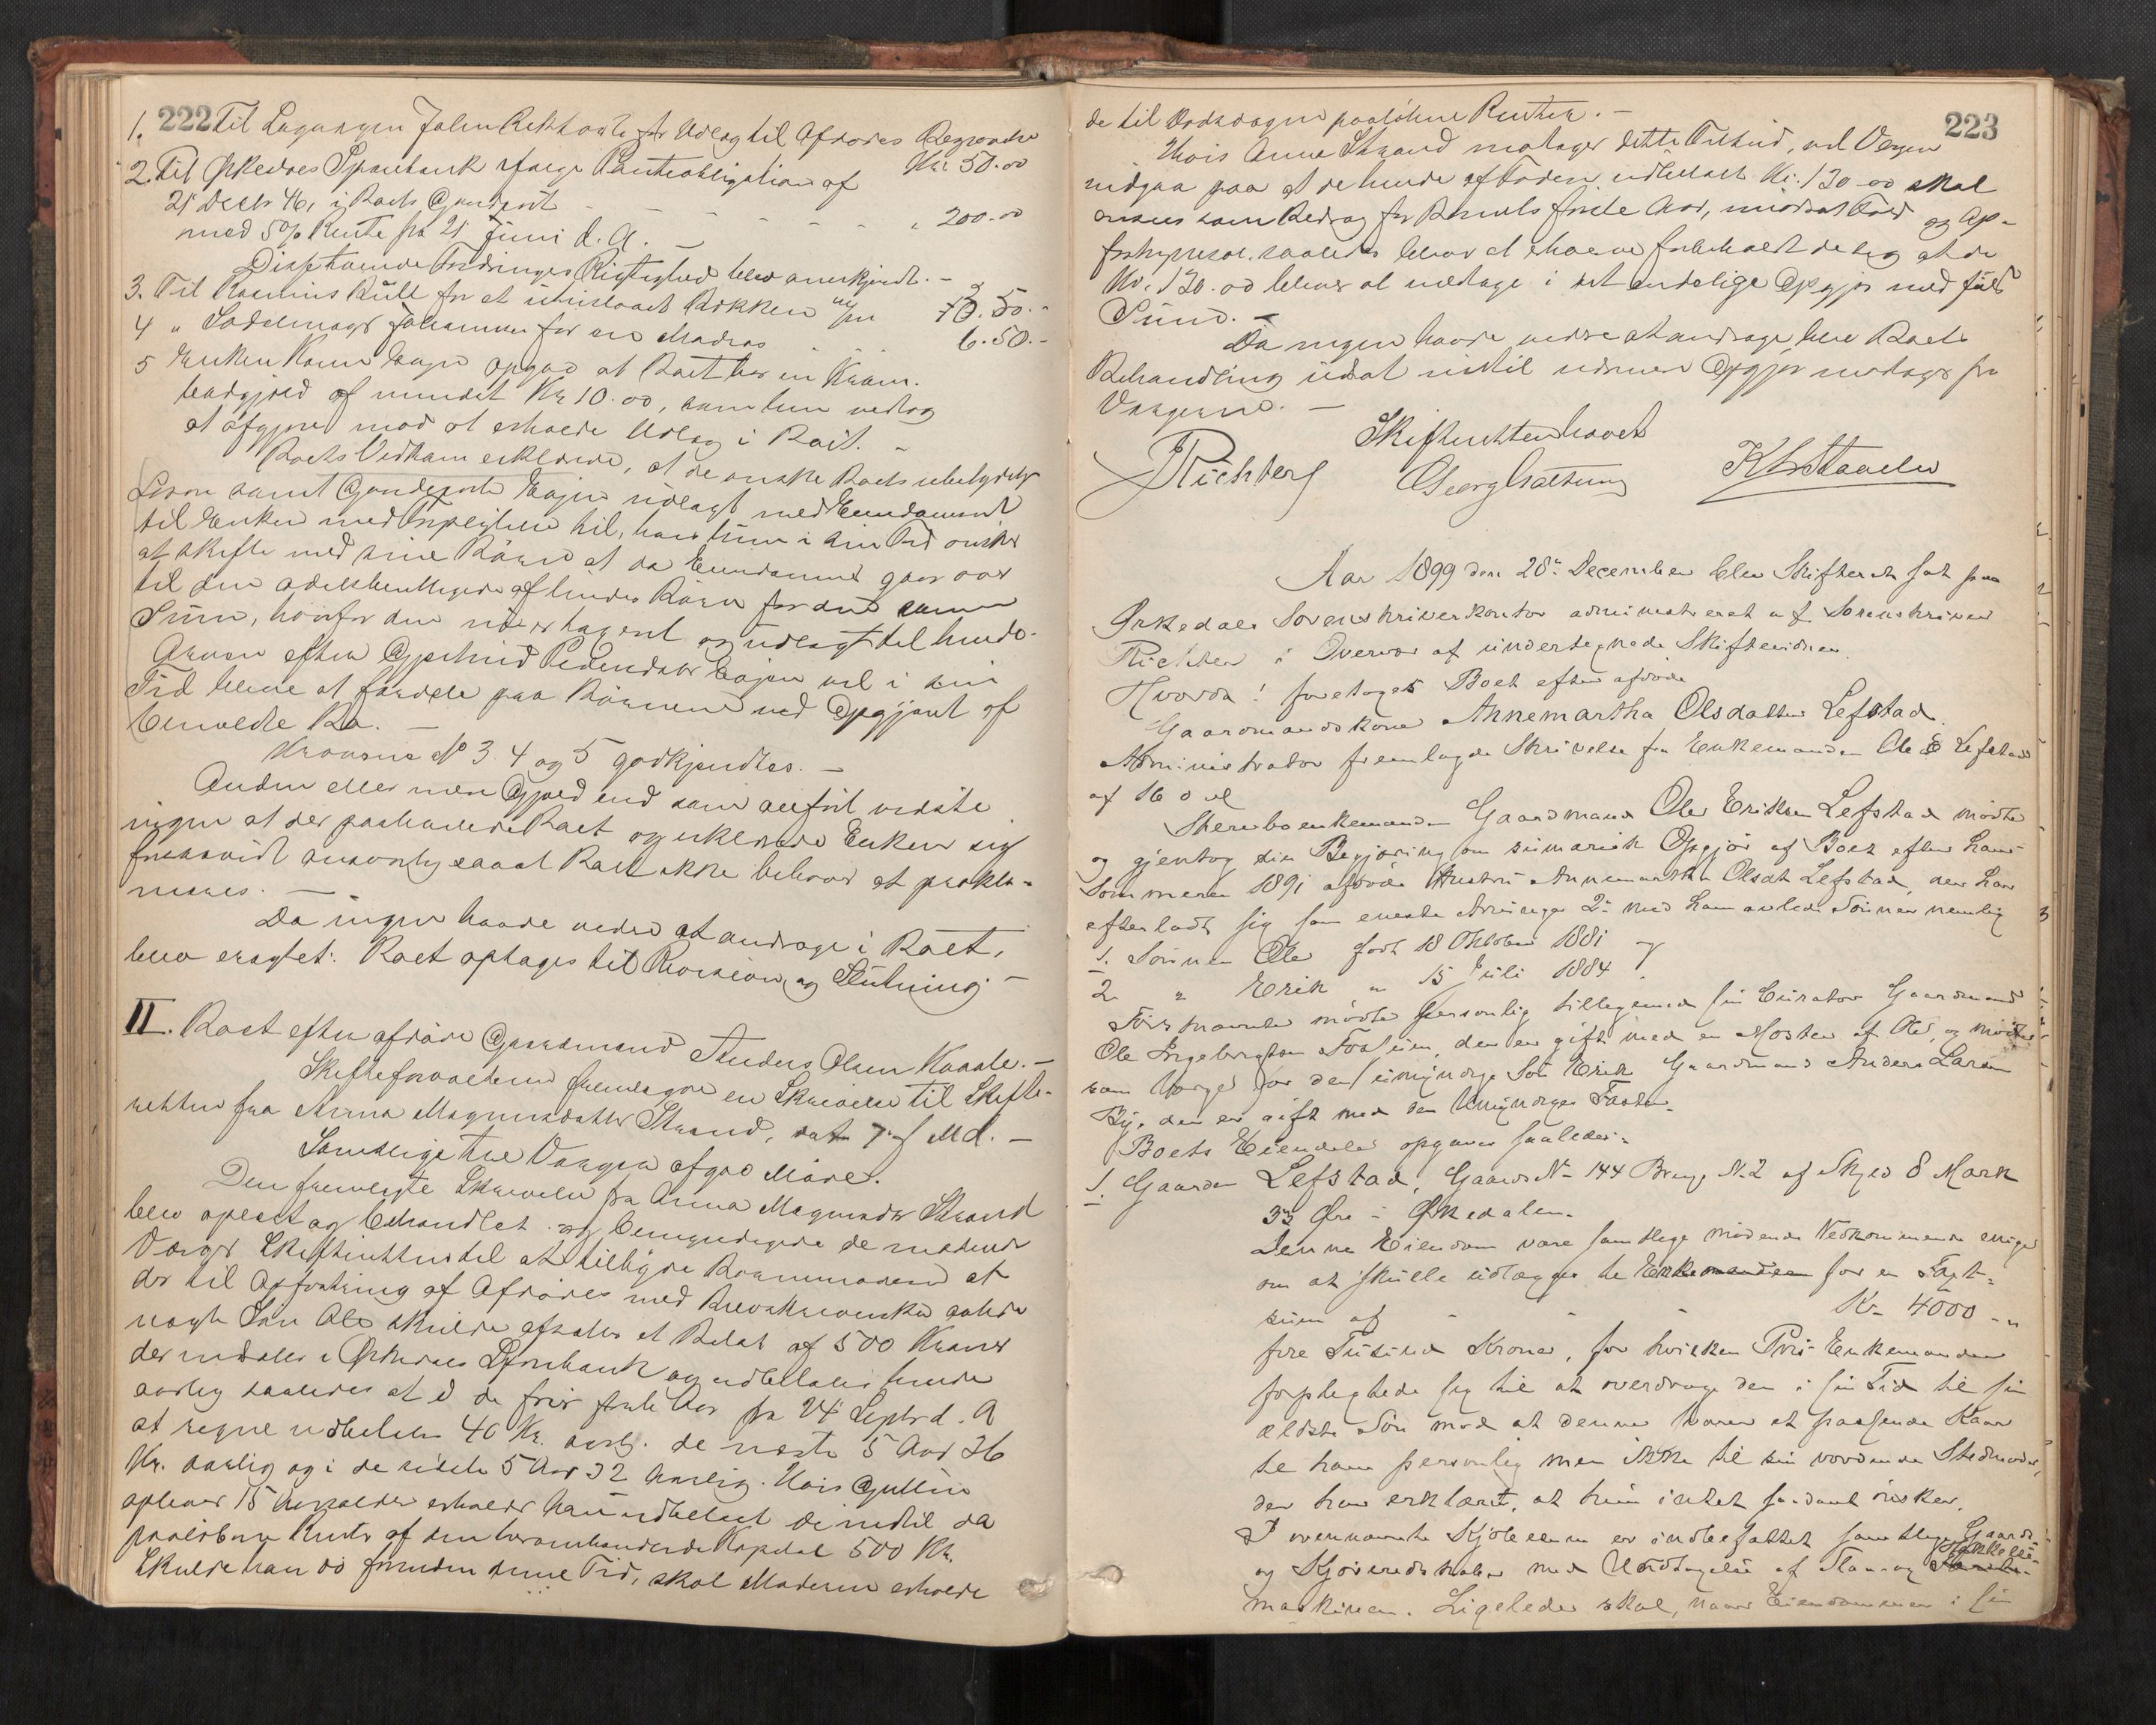 222
1. Til Lagmand Johan Rekstad for Udlæg til Afdødes Begravelse
Kr. 50.00
2. Til Ørkedals Sparebank ifølge Pantobligation af
21 Decbr 96, i Boets Gaardpart - - - " 200.00
med 5% Rente fra 21 Juni d. A. -
Disse Fordringers Rigtighed blev anerkjendt. -
3. Til Rasmus for et 10.50.-
4 " Sadelmager Johannesen for en Madras - - 6.50.-
5 Enken opgav at Boet har en Kram-
bodgjæld af mindst Kr 10.00, som hun vedtog
at afgjøre mod at erholde Udlæg i Boet. -
Boets Vedkommende erklærede, at de ønske Boets ubetydelige
Løsøre samt Gaardpart udlagt med Eiendommen
til Enken med Forpligtelse til, hvis hun i sin Tid ønsker
at skifte med sine Børn at da Eiendommen gaar over
til den odelsberettigede af hendes Børn for den samme
Sum, hvorfor den nu er tagsert og udlagt til hende.
Arven efter Gjertrud Pedersdatter vil i sin
Tid blive at fordele paa Børnene ved Opgjøret af
bemeldte Bo. -
Kravene No 3. 4 og 5 godkjendtes. -
Anden eller mere Gjæld end som anført vidste
ingen at der paahvilede Boet og erklærede Enken sig
forsaavidt ansvarlig saaat Boet ikke behøver at prokla-
meres. -
Da ingen havde videre at andrage i Boet,
blev eragtet: Boet optages til Revision og Slutning. -
II. Boet efter afdøde Gaardmand Anders Olsen Kaale. -
Skifteforvalteren fremlagde en Skrivelse til Skifte-
retten fra Anna Magnusdatter Strand, dat. 7 d. Md. -
Samtlige tre Værger afgav Møde.
Den fremlagte Skrivelse fra Anna Magnusdtr Strand
blev oplæst og behandlet og bemyndigede de mødende
Værger Skifteretten til at tilbyde Barnemoderen at
der til Opfostring af Afdødes med Brevskriversken avlede
uægte Søn Ole skulde afsættes et Beløb af 500 Kroner
der indsættes i Ørkedals Sparebank og udbetales hende
aarlig saaledes at i de første fem Aar fra 24 Septbr d. A
at regne udbetales 40 Kr. aarlig. de næste 5 Aar 36
Kr. aarlig og i de sidste 5 Aar 32 aarlig. Hvis Gutten
oplever 15 Aarsalder erholder han udbetalt de indtil da
paaløbne Renter af den Kapital 500 Kr.
Skulde han dø forinden denne Tid, skal Moderen erholde
223
de til Dødsdagen paaløbne Renter. -
Hvis Anna Strand modtager dette Tilbud, vil Værgen
indgaa paa at de hende af Faderen udbetalt Kr. 130.00 skal
ansees som Bidrag for Barnets første Aar, medens og Op-
saaledes at de
Kr. 130.00 bliver at medtage i det endelige Opgjør med fuld
Sum. -
Da ingen havde videre at andrage blev Boets
Behandling udsat indtil nærmere Opgjør modtages fra
Værgerne. -
Skifteretten hævet
Richter Georg K L Staalen
Aar 1899 den 28de December blev Skifteret sat paa
Ørkedals Sorenskriverkontor administreret af Sorenskriver
Richter i Overvær af undertegnede Skiftevidner.
Hvorda! foretoges Boet efter afdøde
Gaardmandskone Annemartha Olsdatter Lefstad.
Administrator fremlagde Skrivelse fra Enkemanden Ole E Lefstad
af 16 d M
Sterboenkemanden Gaardmand Ole Eriksen Lefstad mødte
og gjentog sin Begjæring om sumarisk Opgjør af Boet efter hans
Sommeren 1891 afdøde Hustru Annemartha Olsdt Lefstad, der har
efterladt sig som eneste Arvinger 2de med ham avlede Sønner nemlig
1. Sønnen Ole født 18 Oktober 1881
2 " Erik " 15 Juli 1884
Førstnævnte mødte personlig tilligemed sin Curator Gaardmand
Ole Ingebrigtsen Foseim, der er gift med en Moster af Ole, og mødte
som Værge for den umyndige Søn Erik Gaardmand Anders Larsen
By, der er gift med den Umyndiges Faster.
Boets Eiendele opgaves saaledes:
1. Gaarden Lefstad, Gaards No 144 Brugs No. 2 af Skyld 8 Mark
33 Øre i Ørkedalen.
Denne Eiendom vare samtlige mødende Vedkommende enige
om at skulle udlægges til Enkemanden for en Taxt-
sum af - - - Kr 4000 - "
fire Tusinde Kroner, for hvilken Pris Enkemanden
forpligtede sig til at overdrage den i sin Tid til sin
ældste Søn mod at denne svarer et passende Kaar
til ham personlig men ikke til sin vordende Stedmoder,
der har erklæret, at hun intet saadant ønsker.
I ovennævnte Kjøbesum er indbefattet samtlige Gaards-
og Kjøreredskaber med Undtagelse af Slaa- og Hakkelse-
maskinen. Ligeledes skal, naar Eiendommen i sin